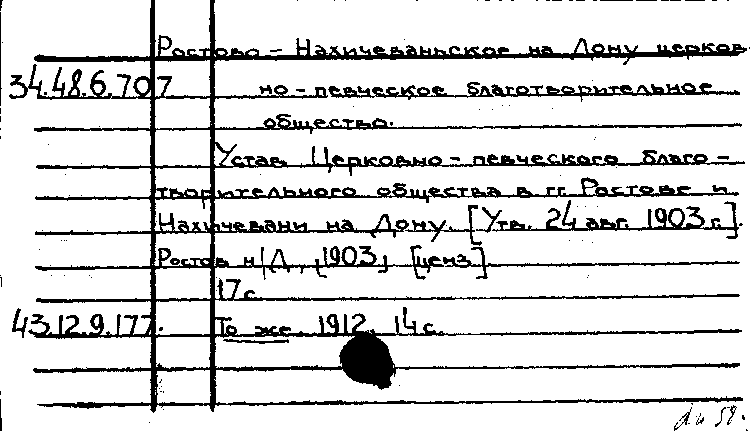 Ростово - Нахичеваньское на Дону церков
34.48.6.707 но - певческое благотворительное
общество.
Устав Церковно - певческого благо -
творительного общества в гг. Ростове и
Нахичевани на Дону. [Утв. 24 авг. 1903 г.].
Ростов н/Д, [1903] [ценз.]
17 с.
43.12.9.177. То же. 1912. 14 с.